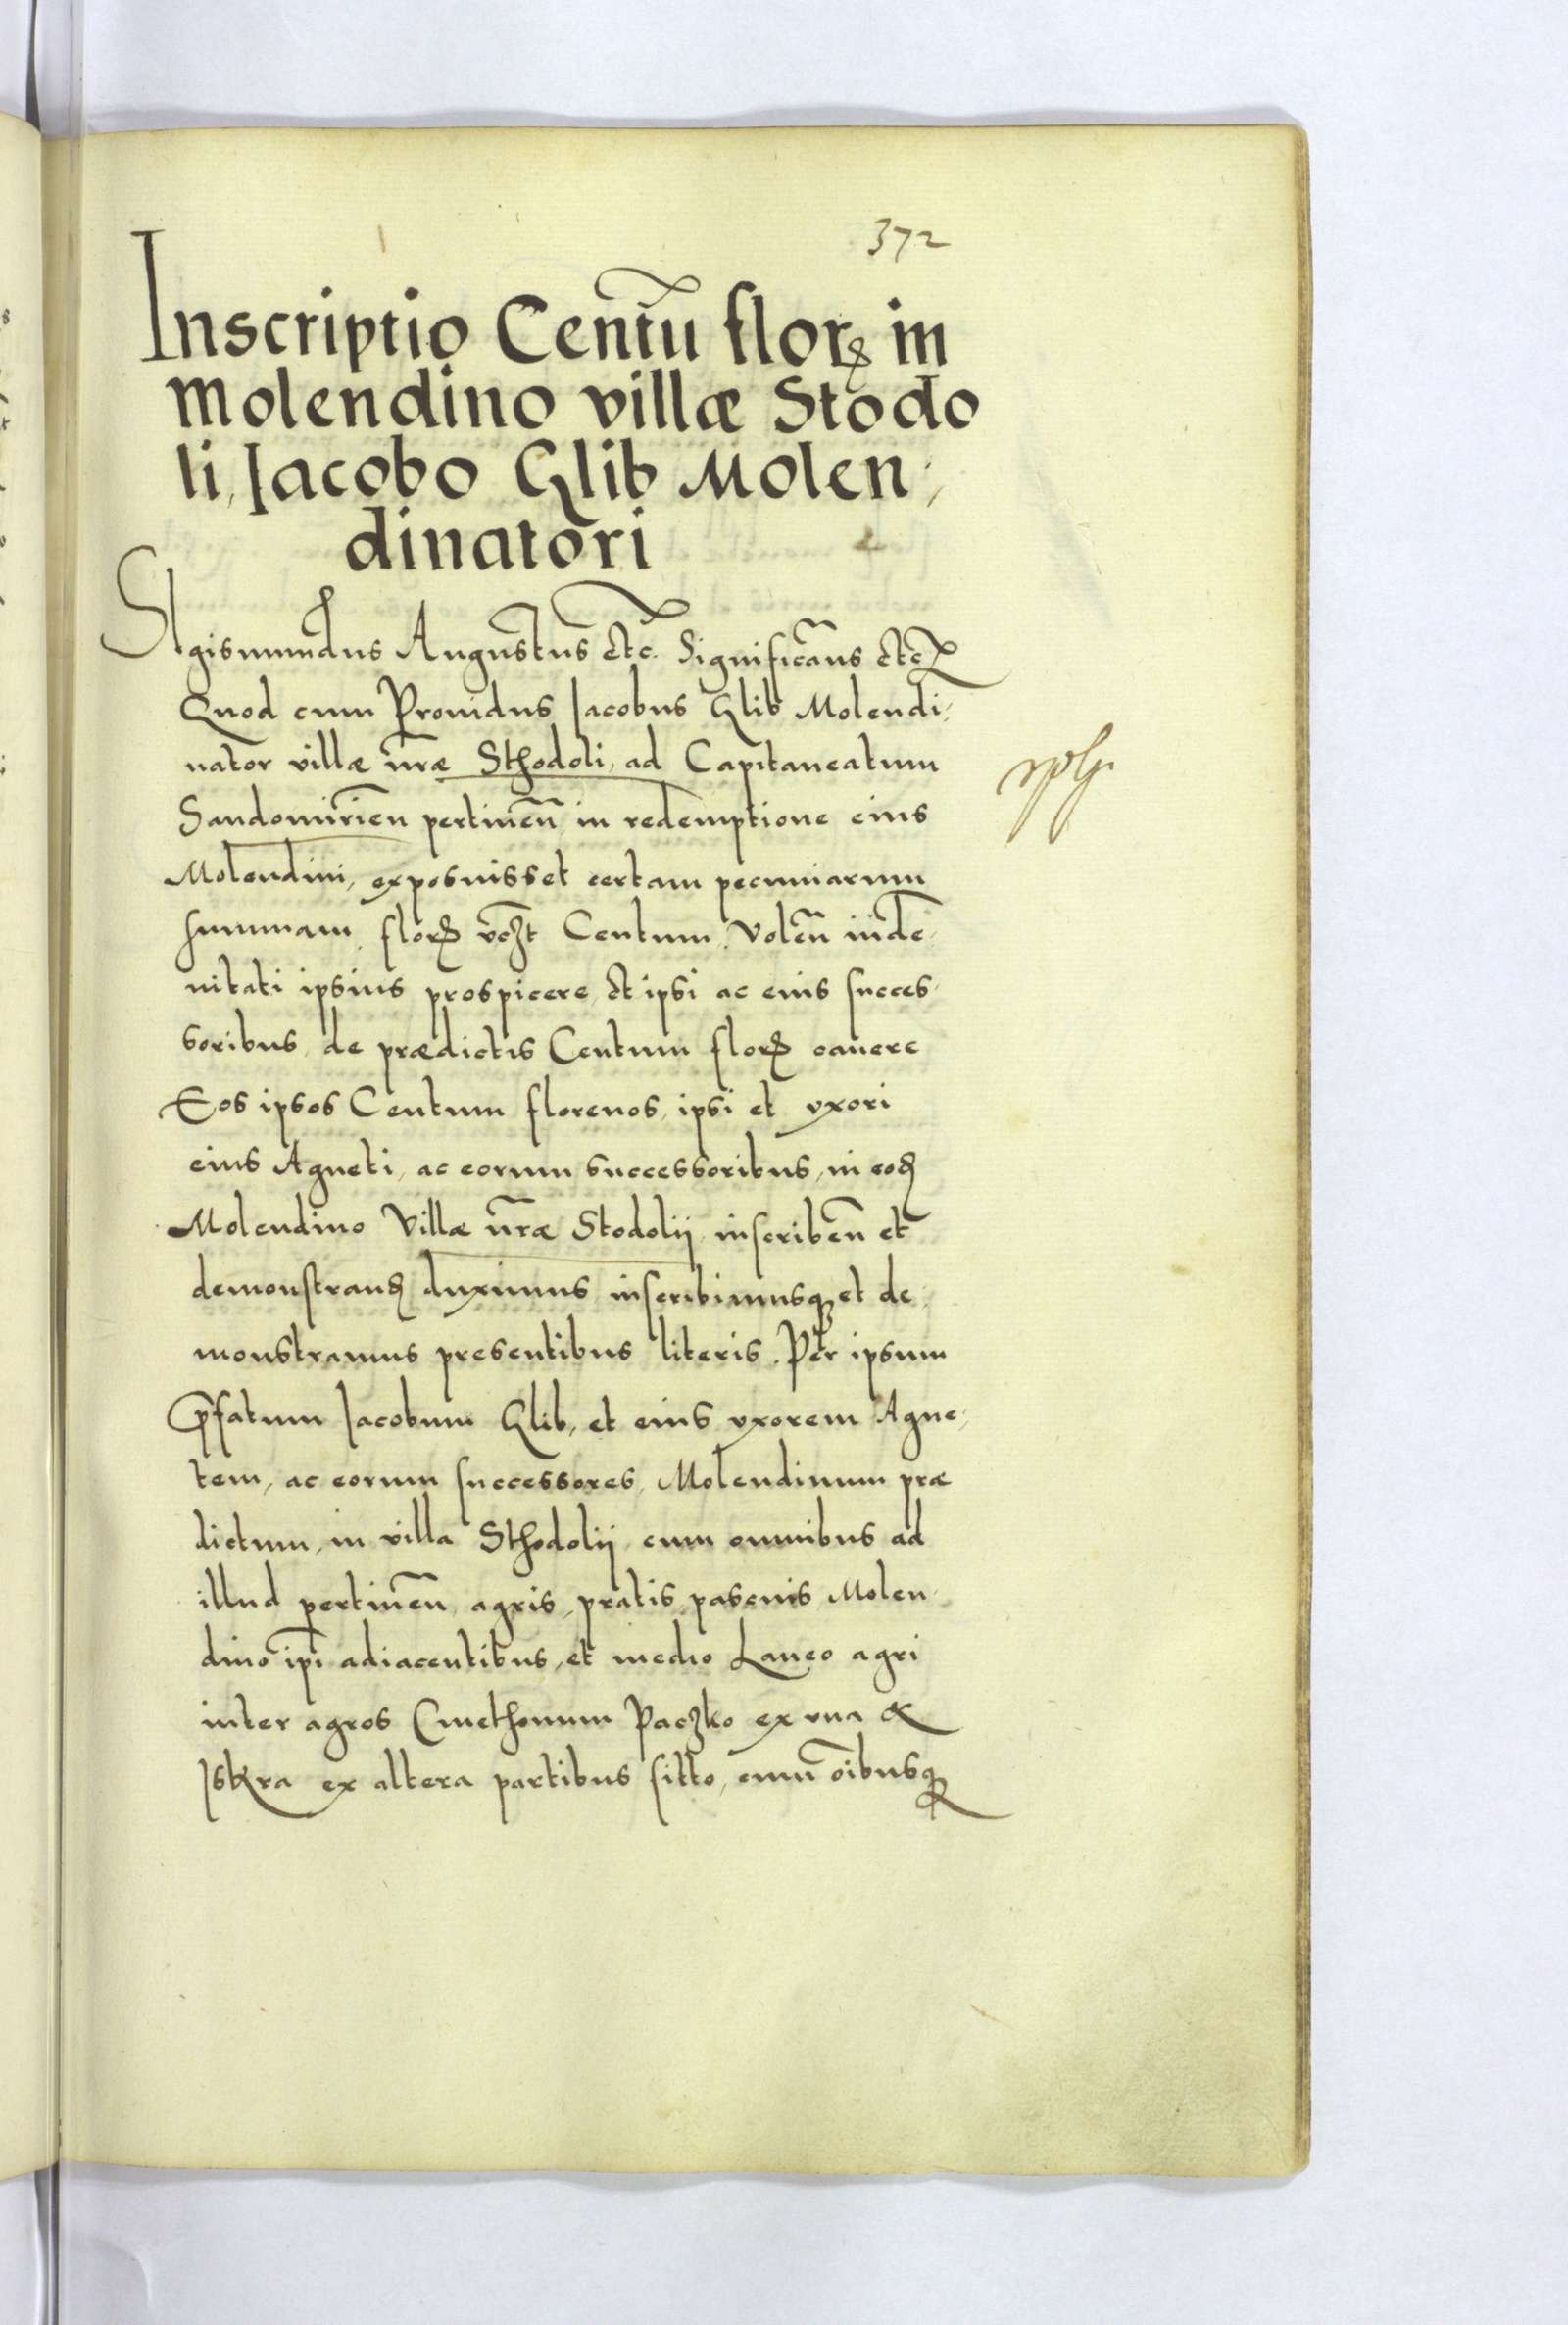 372
Inscriptio Centū florꝝ in
Molendino villæ Stodo
li, Iacobo Glib Molen,
dinatori
SIgismundus Augustus etc. Significamus etc
Quod cum Prouidus Iacobus Glib Molendi,
nator villæ nr̄æ Sthodoli, ad Capitaneatum
Sandomirien̄ pertinen̄ in redemptione eius
Molendini, exposuisset certam pecuniarum
summam florꝝ vczt Centum, Volen̄ inde,
nitati ipsius prospicere, et ipsi ac eius succes,
soribus, de prædictis Centum florꝝ cauere
Eos ipsos Centum florenos, ipsi et vxori
eius Agneti, ac eorum successoribus, in eod
Molendino Villæ nr̄æ Stodolij, inscriben̄ et
demonstrand duximus inscribimusqȝ et de,
monstramus presentibus literis. Per ipsum
Pr̄fatum Iacobum Glib, et eius vxorem Agne,
tem, ac eorum successores, Molendinum præ
dictum, in villa Sthodolij cum omnibus ad
illud pertinen̄, agris, pratis, pascuis Molen,
dino ip̄i adiacentibus, et medio Laneo agri
inter agros Cmethonum Paczko ex vna &
Iskra ex altera partibus sitto, cum oībusqȝ